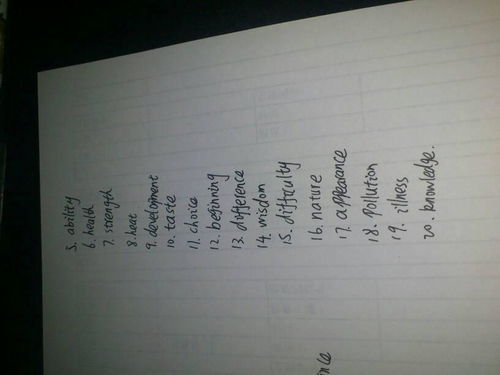 5. ability
6. health
7. strength
8. heat
9. development
10. taste
11. choice
12. beginning
13. difference
14. wisdom
15. difficulty
16. nature
17. appearance
18. pollution
19. illness
20. knowledge.